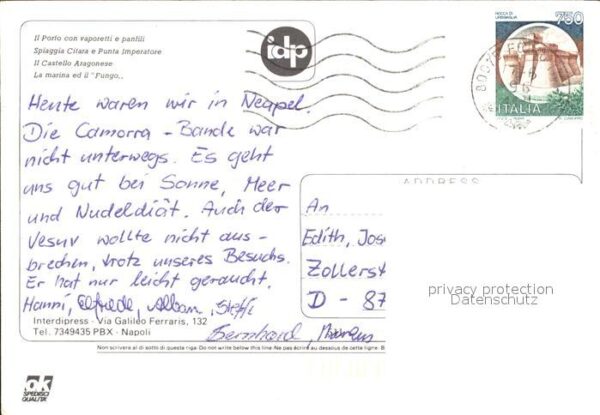 Il Porto con vaporetti e panfili
Spiaggia Citara e Punta Imperatore
Il Castello Aragonese
La marina ed il "Fungo„
idp
ROCCA DI
URBISAGLIA
750
ITALIA
Heute waren wir in Neapel.
Die Camorra-Bande war
nicht unterwegs. Es geht
uns gut bei Sonne, Meer
und Nudeldiät. Auch der
Vesuv wollte nicht aus-
brechen, trotz unseres Besuchs.
Er hat nur leicht geraucht.
Hanni, Elfriede, Alban, Steffi
Bernhard,
ADDRESS
An
Edith, Jos
Zollerst
D - 87
privacy protection
Datenschutz
Interdipress - Via Galileo Ferraris, 132
Tel. 7349435 PBX - Napoli
Non scrivere al di sotto di questa riga. Do not write below this line. Ne pas écrire au dessous de cette ligne. B
ok
SPEDISCI
QUALITÀ